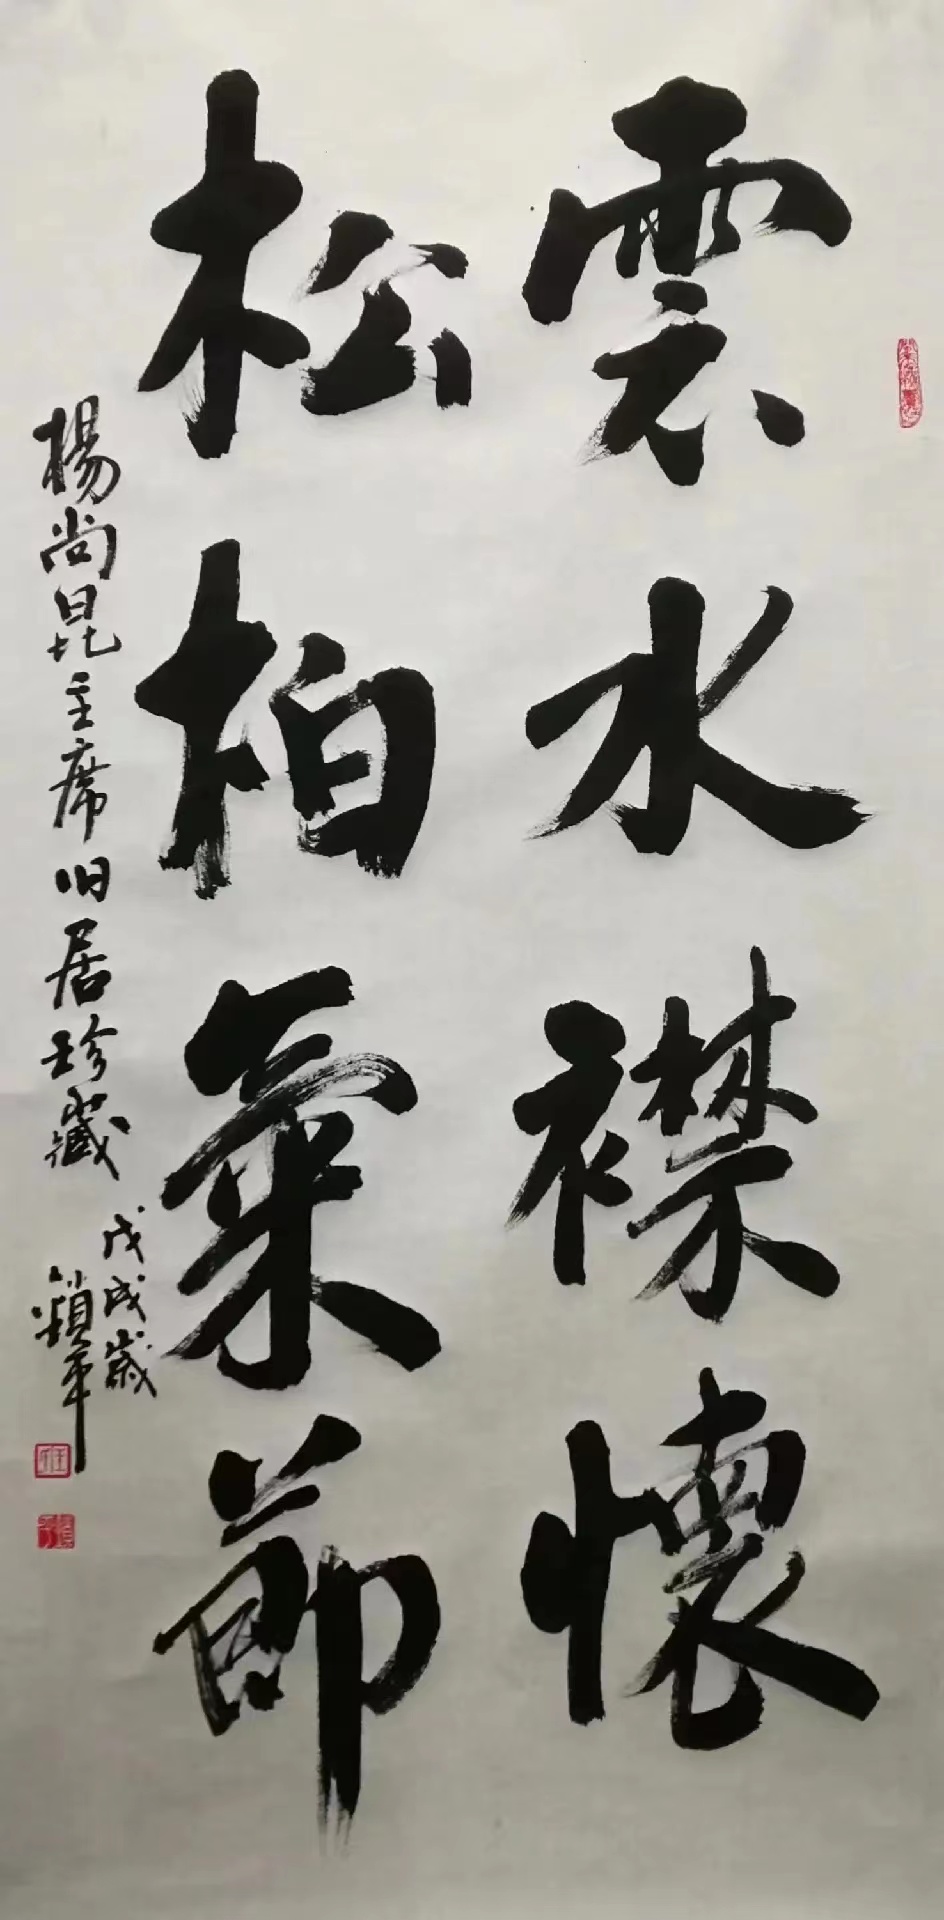 雲水襟懷
松柏氣節
楊尚昆主席旧居珍藏
戊戌歲
鎖平